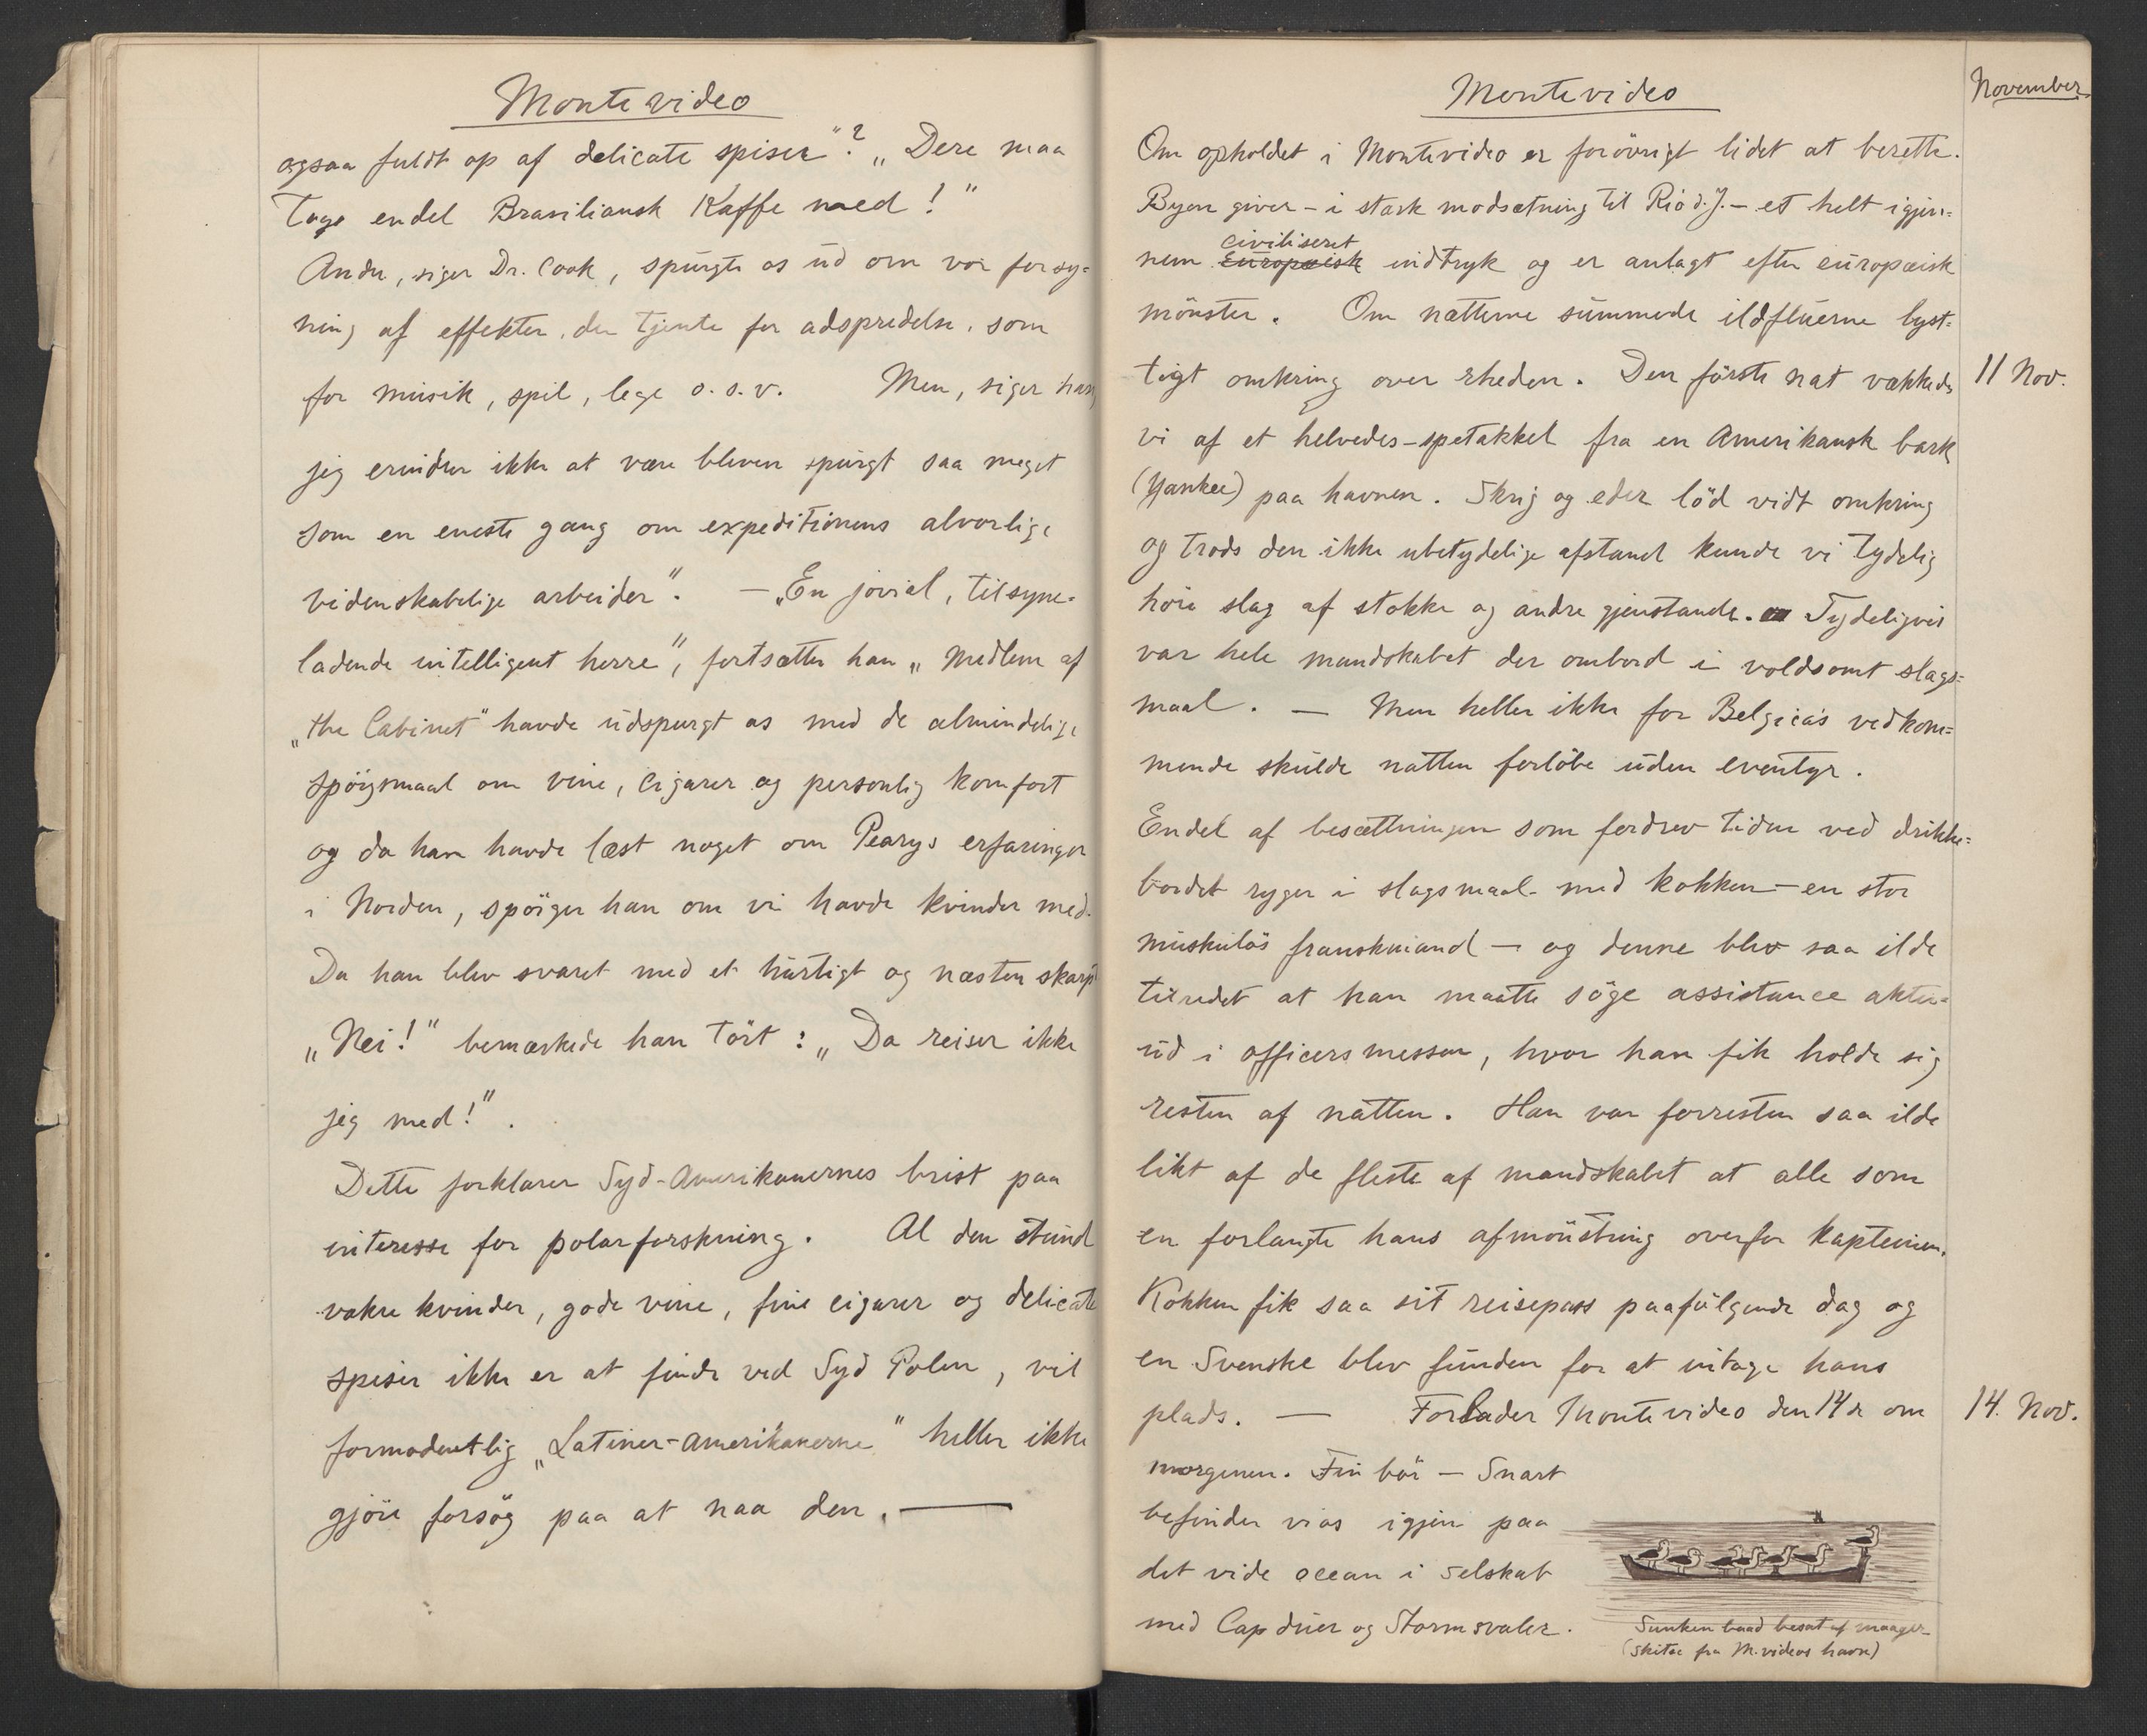 Montevideo
ogsaa fuldt op af delicate spiser"? „Dere maa
tage endel Brasiliansk Kaffe med!"
Andre, siger Dr. Cook, spurgte os ud om vor forsy=
ning af effekter, der tjente for adspredelse, som
for musik, spil, lege o.s.v. Men, siger han,
jeg erindrer ikke at være bleven spurgt saa meget
som en eneste gang om expeditionens alvorlige
videnskabelige arbeider". — „En jovial, tilsyne-
ladende intelligent herre", fortsætter han „Medlem af
„the Cabinet" havde udspurgt os med de almindelige
spörgsmaal om vine, cigarer og personlig komfort
og da han havde læst noget om Pearys erfaringer
i Norden, spörger han om vi havde kvinder med.
Da han blev svaret med et hurtigt og næsten skarpt
„Nei!" bemærkede han tört: „Da reiser ikke
jeg med!".
Dette forklarer Syd-Amerikanernes brist paa
interesse for polarforskning. Al den stund
vakre kvinder, gode vine, fine cigarer og delicate
spiser ikke er at finde ved Syd Polen, vil
formodentlig „Latiner-Amerikanerne" heller ikke
gjöre forsög paa at naa den. —
Montevideo
November
Om opholdet i Montevideo er forövrigt lidet at berette.
Byen giver - i stærk modsætning til Rio d. J. - et helt igjen=
civiliseret
nem Europæisk indtryk og er anlagt efter europæisk
mönster. Om nætterne summede ildfluerne lyst=
tigt omkring over rheden. Den förste nat vækkedes
11 Nov.
vi af et helvedes-spetakkel fra en Amerikansk bark
(Yankee) paa havnen. Skrig og eder löd vidt omkring
og trods den ikke ubetydelige afstand kunde vi tydelig
höre slag af stokke og andre gjenstande. Tydeligvis
var hele mandskabet der ombord i voldsomt slags=
maal. — Men heller ikke for Belgica's vedkom=
mende skulde natten forlöbe uden eventyr.
Endel af besættningen som fordrev tiden ved drikke=
bordet ryger i slagsmaal med kokken — en stor
muskulös franskmand — og denne blev saa ilde
tilredet at han maatte söge assistance akter=
ud i officersmessen, hvor han fik holde sig
resten af natten. Han var forresten saa ilde
likt af de fleste af mandskabet at alle som
en forlangte hans afmönstring overfor kapteinen.
Kokken fik saa sit reisepass paafölgende dag og
en Svenske blev funden for at intage hans
plads. — Forlader Montevideo den 14de om
14. Nov.
morgenen. Fin bör — Snart
befinder vi os igjen paa
det vide ocean i selskab
med Cap duer og Stormsvaler.
Sunken baad besat af maager
(Skitse fra M.videos havn)